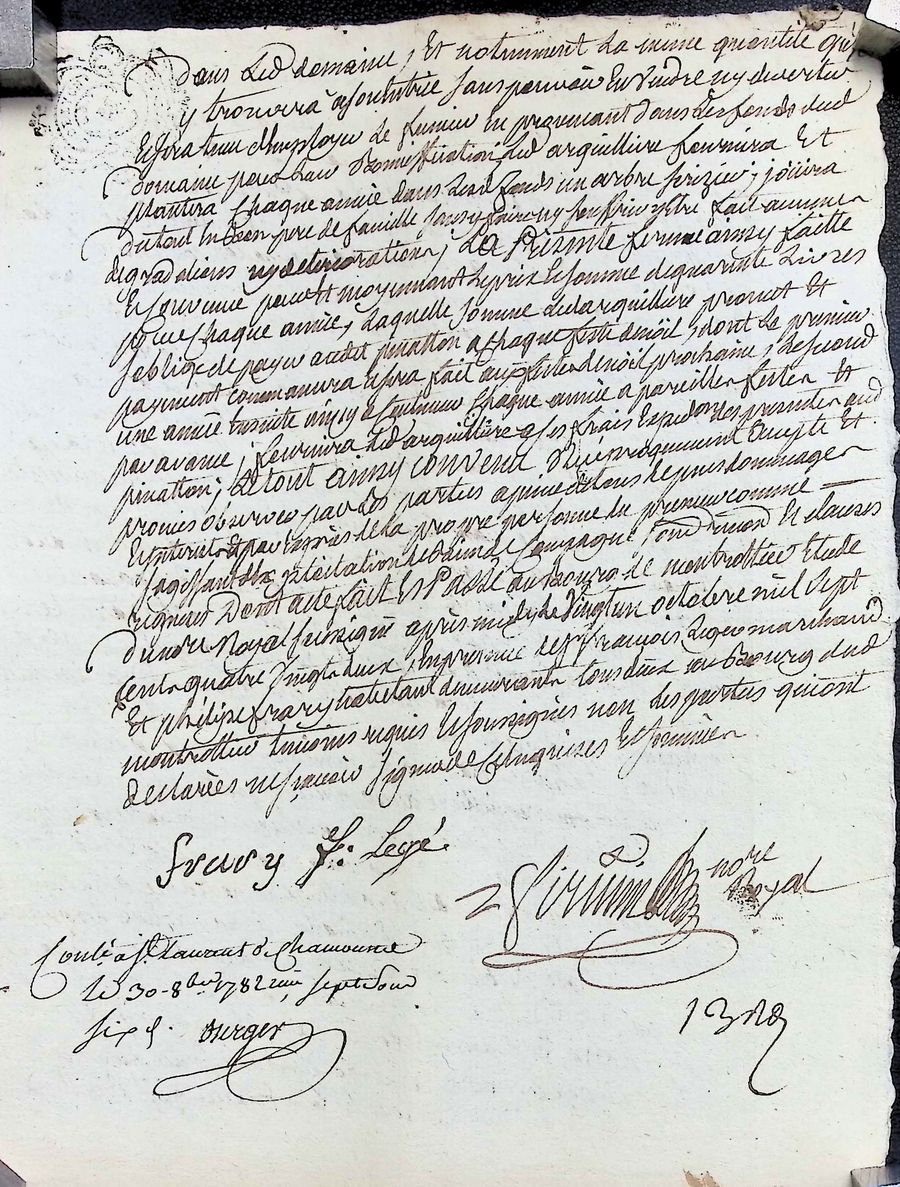 Dans led domaine, Et notamment La meme quantité qu'il
y trouvera a son entrée sans pouvoir En vendre ny divertir
Et sera tenu d'employer Le fumier en provenant dans Les fonds dud
domaine pour leur Bonniffication, led arquilliere fournira Et
plantera Chaque année dans Lesd fonds un arbre, joüira
du tout En Bon pere de famille sans y faire ny souffrir y Etre fait aucunes
degradations ny deteriorations; La Presente ferme ainsy faitte
Et Convenue pour Et moyennant Le prix Et somme de quarante Livres
pour Chaque année, Laquelle somme led arquilliere promet Et
s'oblige de payer audit pinatton a Chaque feste de noël, dont Le premier
payement Commancera Et sera fait aux festes de noël prochaine, Le second
une année Ensuite ainsy a Continuer Chaque année a pareilles festes Et
par avance; fournira led arquilliere a ses frais Expedon des presentes aud
pinatton; Le tout ainsy Convenu Reciproquement accepté Et
promis observer par Les parties a peine de tous depens dommages
Et interets Et par Exprès de la propre personne du preneur comme
s'agissant d'exploitation de Biens de Campagne, soud renond Et clauses
requises Dont acte fait Et Passé au Bourg de montrottier Etude
du nore Royal soussigné après midy Le vingt un octobre mil sept
Cent quatre vingt deux, En presence de sr françois Legé marchand
Et phelipe frary habitant demeurants tous deux au Bourg dud
montrottier temoins requis Et soussignés non Les parties qui ont
declarées ne sçavoir signer de Ce Enquises Et sommées

frary F: Legé

nore
Royal

Conlé a St Laurent de Chamousset
Le 30 8bre 1782 reçu sept sous
six d. Berger